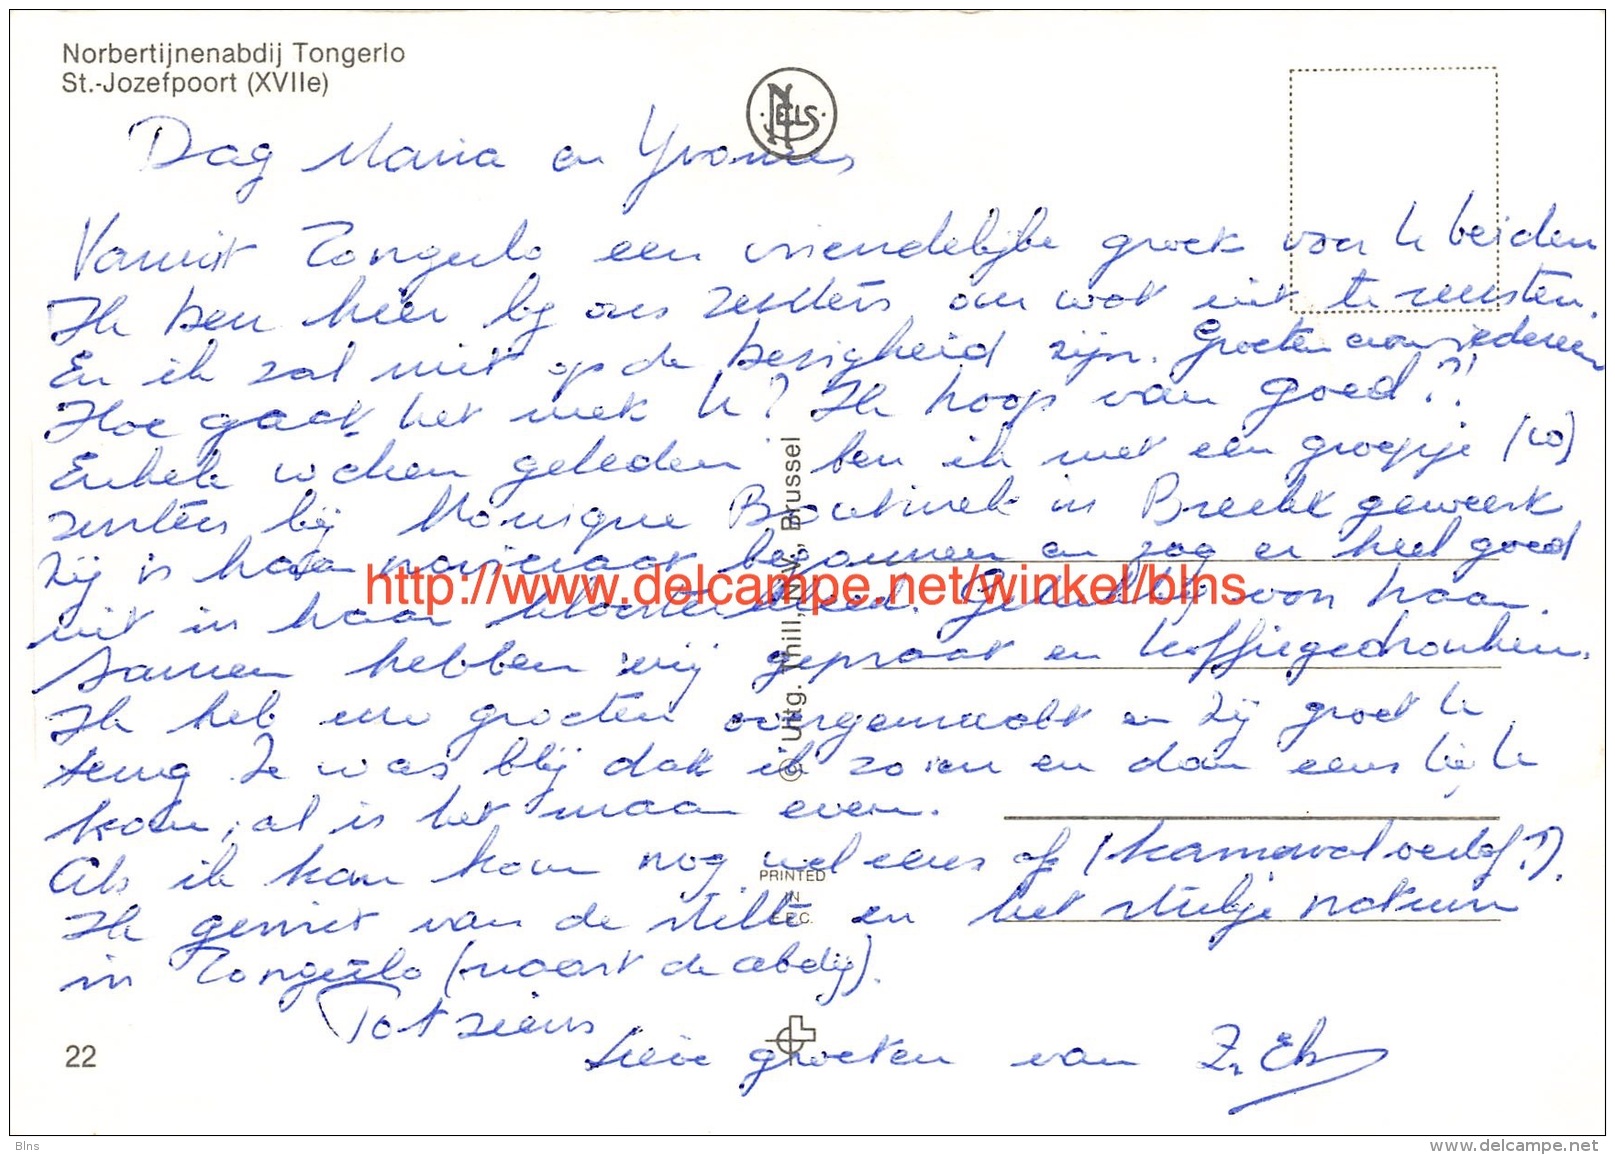 Norbertijnenabdij Tongerlo
St.-Jozefpoort (XVIIe)
NELS
Dag Maria en Yvonnes
Vanuit Tongerlo een vriendelijke groet voor U beiden
Ik ben hier bij ons zusters om wat uit te rusten.
En ik zal niet op de bezigheid zijn. Groeten aan iedereen
Hoe gaat het met U? Ik hoop van goed?!
Enkele weken geleden ben ik met een groepje (10)
zusters bij Monique in Brecht geweest
Zij is haar noviciaat begonnen en zag er heel goed
uit in haar kloosterkleed. Gelukkig voor haar.
Samen hebben wij gepraat en koffiegedronken.
Ik heb uw groeten overgemaakt en zij groet U
terug. Ze was blij dat ik zo nu en dan eens bij U
kom, al is het maar even.
Als ik kan kom nog wel eens af (karnavalverlof?).
Ik geniet van de stilte en het stukje natuur
in Tongerlo (naast de abdij).
Tot ziens
Lieve groeten van Z. Els
© Uitg. Thill, N.V., Brussel
PRINTED
IN
E.E.C.
22
http://www.delcampe.net/winkel/blns
Blns
www.delcampe.net